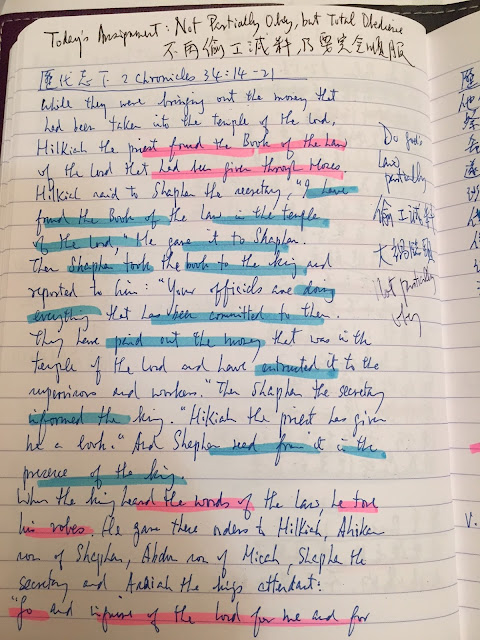 Today's Assignment: Not Partially Obey, but Total Obedience
不再偷工減料,乃要完全順服
歷代志下 2 Chronicles 34:14-21
While they were bringing out the money that
had been taken into the temple of the Lord,
Hilkiah the priest found the Book of the Law
of the Lord that had been given through Moses.
Hilkiah said to Shaphan the secretary, "I have
found the Book of the Law in the temple
of the Lord," He gave it to Shaphan.
Then Shaphan took the book to the king and
reported to him: "Your officials are doing
everything that has been committed to them.
They have paid out the money that was in the
temple of the Lord and have entrusted it to the
supervisors and workers." Then Shaphan the secretary
informed the king. "Hilkiah the priest has given
me a book." And Shaphan read from it in the
presence of the king.
When the king heard the words of the Law, he tore
his robes. He gave these orders to Hilkiah, Ahikam
son of Shaphan, Abdon son of Micah, Shaphan the
secretary and Asaiah the king's attendant:
"Go and inquire of the Lord for me and for
Do God's
Law
partially
偷工減料
Not partially
obey
歷
他
V.